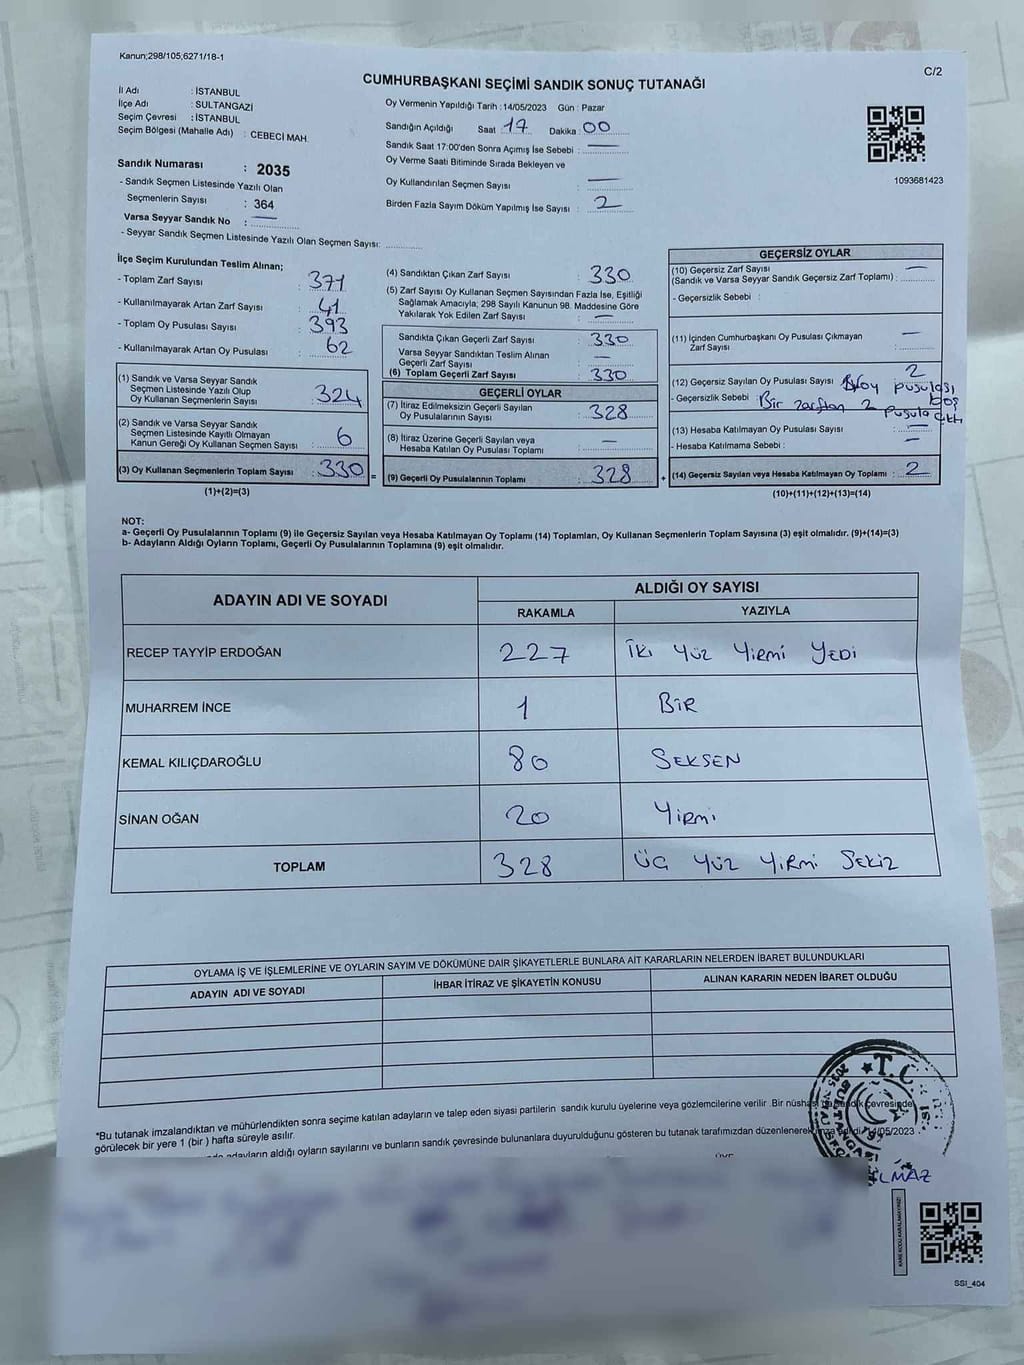 Kanun;298/105,6271/18-1
C/2
CUMHURBAŞKANI SEÇİMİ SANDIK SONUÇ TUTANAĞI
İl Adı : İSTANBUL
İlçe Adı : SULTANGAZİ
Seçim Çevresi : İSTANBUL
Seçim Bölgesi (Mahalle Adı) : CEBECİ MAH.
Sandık Numarası : 2035
- Sandık Seçmen Listesinde Yazılı Olan
Seçmenlerin Sayısı : 364
Varsa Seyyar Sandık No :
- Seyyar Sandık Seçmen Listesinde Yazılı Olan Seçmen Sayısı:
Oy Vermenin Yapıldığı Tarih : 14/05/2023 Gün : Pazar
Sandığın Açıldığı Saat : 17 Dakika : 00
Sandık Saat 17:00'den Sonra Açımış İse Sebebi : —
Oy Verme Saati Bitiminde Sırada Bekleyen ve
Oy Kullandırılan Seçmen Sayısı : —
Birden Fazla Sayım Döküm Yapılmış İse Sayısı : 2
1093681423
İlçe Seçim Kurulundan Teslim Alınan;
- Toplam Zarf Sayısı : 371
- Kullanılmayarak Artan Zarf Sayısı : 41
- Toplam Oy Pusulası Sayısı : 393
- Kullanılmayarak Artan Oy Pusulası : 62
(1) Sandık ve Varsa Seyyar Sandık
Seçmen Listesinde Yazılı Olup
Oy Kullanan Seçmenlerin Sayısı : 324
(2) Sandık ve Varsa Seyyar Sandık
Seçmen Listesinde Kayıtlı Olmayan
Kanun Gereği Oy Kullanan Seçmen Sayısı : 6
(3) Oy Kullanan Seçmenlerin Toplam Sayısı : 330 =
(1)+(2)=(3)
(4) Sandıktan Çıkan Zarf Sayısı : 330
(5) Zarf Sayısı Oy Kullanan Seçmen Sayısından Fazla İse, Eşitliği
Sağlamak Amacıyla, 298 Sayılı Kanunun 98. Maddesine Göre
Yakılarak Yok Edilen Zarf Sayısı : —
Sandıkta Çıkan Geçerli Zarf Sayısı : 330
Varsa Seyyar Sandıktan Teslim Alınan
Geçerli Zarf Sayısı : —
(6) Toplam Geçerli Zarf Sayısı : 330
GEÇERLİ OYLAR
(7) İtiraz Edilmeksizin Geçerli Sayılan
Oy Pusulalarının Sayısı : 328
(8) İtiraz Üzerine Geçerli Sayılan veya
Hesaba Katılan Oy Pusulası Toplamı : —
(9) Geçerli Oy Pusulalarının Toplamı : 328 +
GEÇERSİZ OYLAR
(10) Geçersiz Zarf Sayısı
(Sandık ve Varsa Seyyar Sandık Geçersiz Zarf Toplamı) : —
- Geçersizlik Sebebi :
(11) İçinden Cumhurbaşkanı Oy Pusulası Çıkmayan
Zarf Sayısı : —
(12) Geçersiz Sayılan Oy Pusulası Sayısı : 2
- Geçersizlik Sebebi : oy pusulası boş
Bir zarftan 2 pusula çıktı
(13) Hesaba Katılmayan Oy Pusulası Sayısı : —
- Hesaba Katılmama Sebebi : —
(14) Geçersiz Sayılan veya Hesaba Katılmayan Oy Toplamı : 2
(10)+(11)+(12)+(13)=(14)
NOT:
a- Geçerli Oy Pusulalarının Toplamı (9) ile Geçersiz Sayılan veya Hesaba Katılmayan Oy Toplamı (14) Toplamları, Oy Kullanan Seçmenlerin Toplam Sayısına (3) eşit olmalıdır. (9)+(14)=(3)
b- Adayların Aldığı Oyların Toplamı, Geçerli Oy Pusulalarının Toplamına (9) eşit olmalıdır.
ADAYIN ADI VE SOYADI
ALDIĞI OY SAYISI
RAKAMLA YAZIYLA
RECEP TAYYİP ERDOĞAN 227 İki yüz yirmi yedi
MUHARREM İNCE 1 BİR
KEMAL KILIÇDAROĞLU 80 SEKSEN
SİNAN OĞAN 20 Yirmi
TOPLAM 328 Üç yüz yirmi sekiz
OYLAMA İŞ VE İŞLEMLERİNE VE OYLARIN SAYIM VE DÖKÜMÜNE DAİR ŞİKAYETLERLE BUNLARA AİT KARARLARIN NELERDEN İBARET BULUNDUKLARI
ADAYIN ADI VE SOYADI
İHBAR İTİRAZ VE ŞİKAYETİN KONUSU
ALINAN KARARIN NEDEN İBARET OLDUĞU
T.C.
*Bu tutanak imzalandıktan ve mühürlendikten sonra seçime katılan adayların ve talep eden siyasi partilerin sandık kurulu üyelerine veya gözlemcilerine verilir .Bir nüshası da sandık çevresinde
görülecek bir yere 1 (bir ) hafta süreyle asılır.
adayların aldığı oyların sayılarını ve bunların sandık çevresinde bulunanlara duyurulduğunu gösteren bu tutanak tarafımızdan düzenlenerek imza edildi. 14/05/2023 .
SSI_404